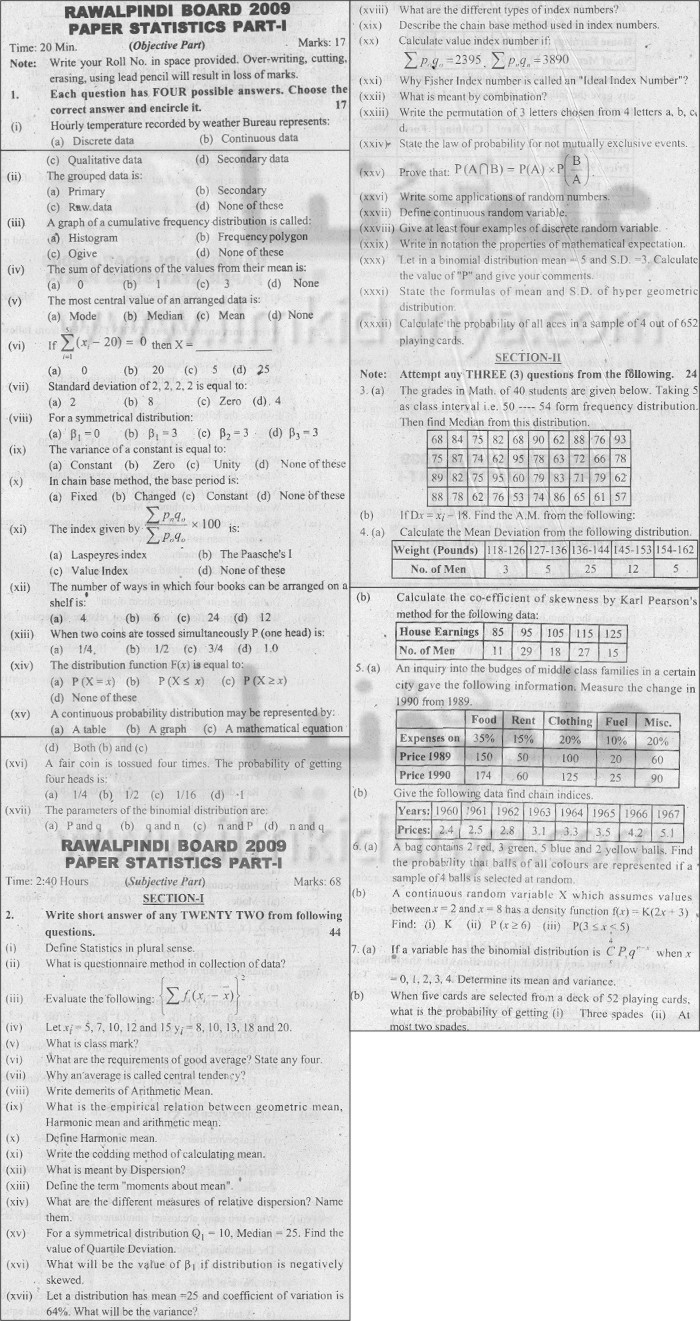 RAWALPINDI BOARD 2009
PAPER STATISTICS PART-I
(Objective Part)
Time: 20 Min. Marks: 17
Note: Write your Roll No. in space provided. Over-writing, cutting,
erasing, using lead pencil will result in loss of marks.
1. Each question has FOUR possible answers. Choose the
correct answer and encircle it. 17
(i) Hourly temperature recorded by weather Bureau represents:
(a) Discrete data (b) Continuous data
(c) Qualitative data (d) Secondary data
(ii) The grouped data is:
(a) Primary (b) Secondary
(c) Raw.data (d) None of these
(iii) A graph of a cumulative frequency distribution is called:
(a) Histogram (b) Frequency polygon
(c) Ogive (d) None of these
(iv) The sum of deviations of the values from their mean is:
(a) 0 (b) 1 (c) 3 (d) None
(v) The most central value of an arranged data is:
(a) Mode (b) Median (c) Mean (d) None
(vi) If ∑(xᵢ - 20) = 0 then X = ________
i=1
(a) 0 (b) 20 (c) 5 (d) 25
(vii) Standard deviation of 2, 2, 2, 2 is equal to:
(a) 2 (b) 8 (c) Zero (d) 4
(viii) For a symmetrical distribution:
(a) β₁ = 0 (b) β₁ = 3 (c) β₂ = 3 (d) β₃ = 3
(ix) The variance of a constant is equal to:
(a) Constant (b) Zero (c) Unity (d) None of these
(x) In chain base method, the base period is:
(a) Fixed (b) Changed (c) Constant (d) None of these
(xi) The index given by ∑pₙqₒ / ∑pₒqₒ × 100 is:
(a) Laspeyres index (b) The Paasche's I
(c) Value Index (d) None of these
(xii) The number of ways in which four books can be arranged on a
shelf is:
(a) 4 (b) 6 (c) 24 (d) 12
(xiii) When two coins are tossed simultaneously P (one head) is:
(a) 1/4, (b) 1/2 (c) 3/4 (d) 1.0
(xiv) The distribution function F(x) is equal to:
(a) P (X = x) (b) P (X ≤ x) (c) P (X ≥ x)
(d) None of these
(xv) A continuous probability distribution may be represented by:
(a) A table (b) A graph (c) A mathematical equation
(d) Both (b) and (c)
(xvi) A fair coin is tossued four times. The probability of getting
four heads is:
(a) 1/4 (b) 1/2 (c) 1/16 (d) -1
(xvii) The parameters of the binomial distribution are:
(a) P and q (b) q and n (c) n and P (d) n and q
RAWALPINDI BOARD 2009
PAPER STATISTICS PART-I
Time: 2:40 Hours (Subjective Part) Marks: 68
SECTION-I
2. Write short answer of any TWENTY TWO from following
questions. 44
(i) Define Statistics in plural sense.
(ii) What is questionnaire method in collection of data?
(iii) Evaluate the following: {∑ fᵢ(xᵢ - x̄)}²
(iv) Let xᵢ = 5, 7, 10, 12 and 15 yᵢ = 8, 10, 13, 18 and 20.
(v) What is class mark?
(vi) What are the requirements of good average? State any four.
(vii) Why an average is called central tendency?
(viii) Write demerits of Arithmetic Mean.
(ix) What is the empirical relation between geometric mean,
Harmonic mean and arithmetic mean.
(x) Define Harmonic mean.
(xi) Write the codding method of calculating mean.
(xii) What is meant by Dispersion?
(xiii) Define the term "moments about mean".
(xiv) What are the different measures of relative dispersion? Name
them.
(xv) For a symmetrical distribution Q₁ = 10, Median = 25. Find the
value of Quartile Deviation.
(xvi) What will be the value of β₁ if distribution is negatively
skewed.
(xvii) Let a distribution has mean =25 and coefficient of variation is
64%. What will be the variance?
(xviii) What are the different types of index numbers?
(xix) Describe the chain base method used in index numbers.
(xx) Calculate value index number if:
∑pₒqₒ = 2395, ∑pₙqₙ = 3890
(xxi) Why Fisher Index number is called an "Ideal Index Number"?
(xxii) What is meant by combination?
(xxiii) Write the permutation of 3 letters chosen from 4 letters a, b, c,
d.
(xxiv) State the law of probability for not mutually exclusive events.
(xxv) Prove that: P(A∩B) = P(A) × P(B/A).
(xxvi) Write some applications of random numbers.
(xxvii) Define continuous random variable.
(xxviii) Give at least four examples of discrete random variable.
(xxix) Write in notation the properties of mathematical expectation.
(xxx) Let in a binomial distribution mean = 5 and S.D. =3. Calculate
the value of "P" and give your comments.
(xxxi) State the formulas of mean and S.D. of hyper geometric
distribution.
(xxxii) Calculate the probability of all aces in a sample of 4 out of 652
playing cards.
SECTION-II
Note: Attempt any THREE (3) questions from the following. 24
3. (a) The grades in Math. of 40 students are given below. Taking 5
as class interval i.e. 50 ---- 54 form frequency distribution.
Then find Median from this distribution.
68 84 75 82 68 90 62 88 76 93
75 87 74 62 95 78 63 72 66 78
89 82 75 95 60 79 83 71 79 62
88 78 62 76 53 74 86 65 61 57
(b) If Dx = xᵢ – 18. Find the A.M. from the following:
4. (a) Calculate the Mean Deviation from the following distribution.
Weight (Pounds) 118-126 127-136 136-144 145-153 154-162
No. of Men 3 5 25 12 5
(b) Calculate the co-efficient of skewness by Karl Pearson's
method for the following data:
House Earnings 85 95 105 115 125
No. of Men 11 29 18 27 15
5. (a) An inquiry into the budges of middle class families in a certain
city gave the following information. Measure the change in
1990 from 1989.
Food Rent Clothing Fuel Misc.
Expenses on 35% 15% 20% 10% 20%
Price 1989 150 50 100 20 60
Price 1990 174 60 125 25 90
(b) Give the following data find chain indices.
Years: 1960 1961 1962 1963 1964 1965 1966 1967
Prices: 2.4 2.5 2.8 3.1 3.3 3.5 4.2 5.1
6. (a) A bag contains 2 red, 3 green, 5 blue and 2 yellow balls. Find
the probability that balls of all colours are represented if a
sample of 4 balls is selected at random.
(b) A continuous random variable X which assumes values
between x = 2 and x = 8 has a density function f(x) = K(2x + 3)
Find: (i) K (ii) P (x ≥ 6) (iii) P(3 ≤ x ≤ 5)
7. (a) If a variable has the binomial distribution is ⁴CₓPₓqⁿ⁻ˣ when x
= 0, 1, 2, 3, 4. Determine its mean and variance.
(b) When five cards are selected from a deck of 52 playing cards,
what is the probability of getting (i) Three spades (ii) At
most two spades.